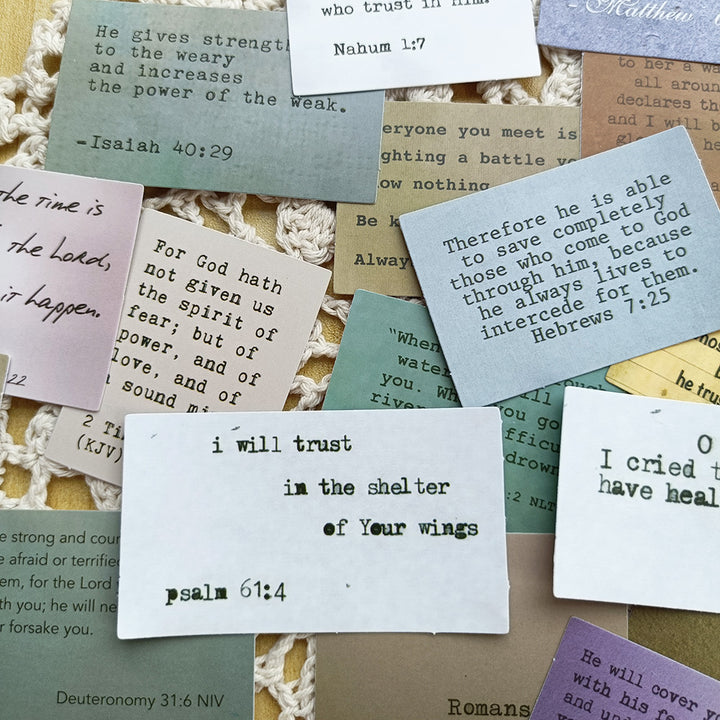 He gives strength
to the weary
and increases
the power of the weak.
-Isaiah 40:29
who trust in Him.
Nahum 1:7
- Matthew
to her a wa
all aroun
declares th
and I will b
he
eryone you meet is
ghting a battle y
ow nothing
Be k
Alway
Therefore he is able
to save completely
those who come to God
through him, because
he always lives to
intercede for them.
Hebrews 7:25
the time is
the Lord,
it happen.
22
For God hath
not given us
the spirit of
fear; but of
power, and of
love, and of
sound mi
2 Ti
(KJV)
"When
water
you. Wh you go
river fficu
drown
:2 NLT
he trus
i will trust
in the shelter
of Your wings
psalm 61:4
O
I cried t
have heal
e strong and cour
e afraid or terrifie
em, for the Lord
th you; he will ne
r forsake you.
Deuteronomy 31:6 NIV
Romans
He will cover y
with his fe
and u